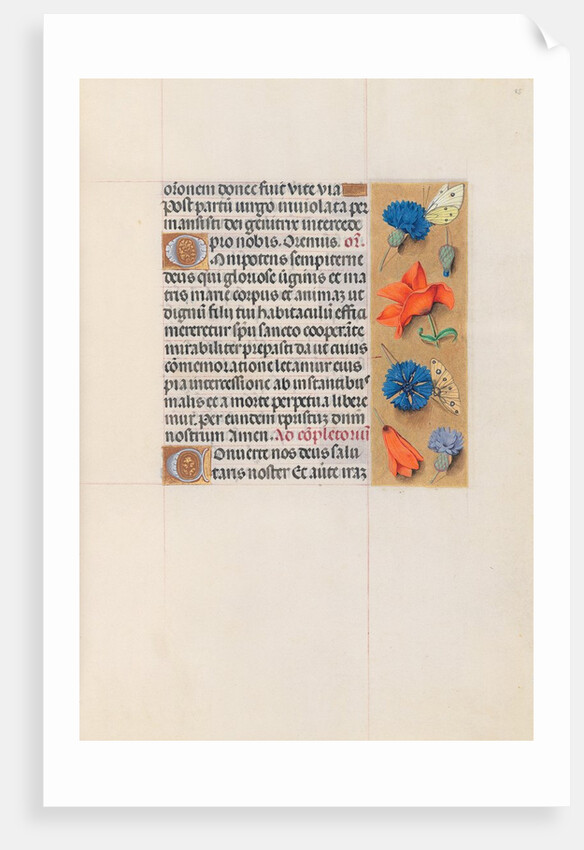 orōnem donec fuit vite via
Post partū uirgo inuiolata per
mansisti dei genitrix intercede
pro nobis. Oremus. or̄.
Omnipotens sempiterne
deus qui gloriose ūginis et ma
tris marie corpus et animaȝ ut
dignū filii tui habitaculū effici
mereretur sp̄u sancto cooperāte
mirabiliter preparasti da ut cuius
cōmemoratione letamur eius
pia intercessione ab instantibus
malis et a morte perpetua libere
mur. Per eundem xp̄istuȝ dnm̄
nostrum Amen. Ad cōpletoriū
Conuerte nos deus salu
taris noster Et auerte iraȝ